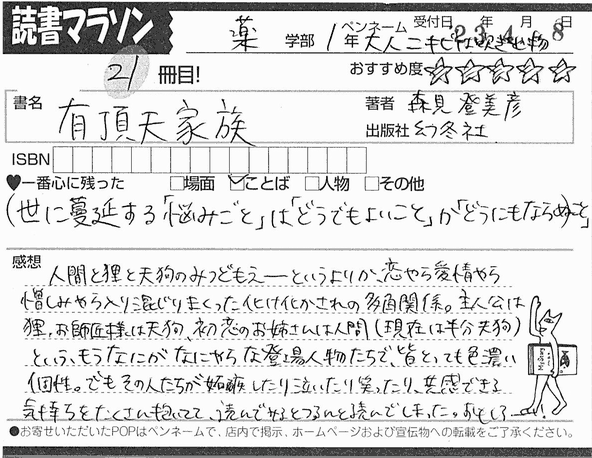 読書マラソン
薬 学部 1年
ペンネーム 大人ニキビは吹き出物
受付日 23年 4月 8日
21 冊目!
おすすめ度 ☆☆☆☆☆
書名 有頂天家族
著者 森見登美彦
出版社 幻冬社
ISBN
♥一番心に残った □場面 ☑ことば □人物 □その他
(世に蔓延する「悩みごと」は「どうでもよいこと」か「どうにもならぬこと」
感想
人間と狸と天狗のみつどもえ――というよりか、恋やら愛情やら
憎しみやら入り混じりまくった化け化かされの多角関係。主人公は
狸、お師匠様は天狗、初恋のお姉さんは人間(現在は半分天狗)
という、もうなにがなにやらな登場人物たちで、皆とっても色濃い
個性。でもその人たちが嫉妬したり泣いたり笑ったり、共感できる
気持ちをたくさん抱いてて、読んでやるとつるんと読んでしまった。おもしろーい!
●お寄せいただいたPOPはペンネームで、店内で掲示、ホームページおよび宣伝物への転載をご了承ください。